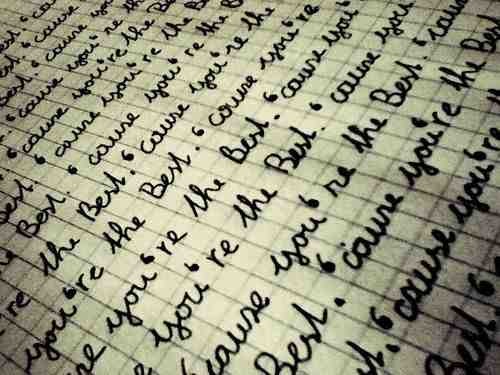 Best. 'cause
Best. 'cause you're the
Best. 'cause you're the Best.
'cause you're the Best.
'cause you're the Best.
Best. 'cause you're the
Best. 'cause you're the
the Best. 'cause you're
're the Best. 'cause you
you're the Best. 'cause you
you're the Best. 'cause
'cause you're the Best.
Best. 'cause you're the Best
'cause you're
Best.